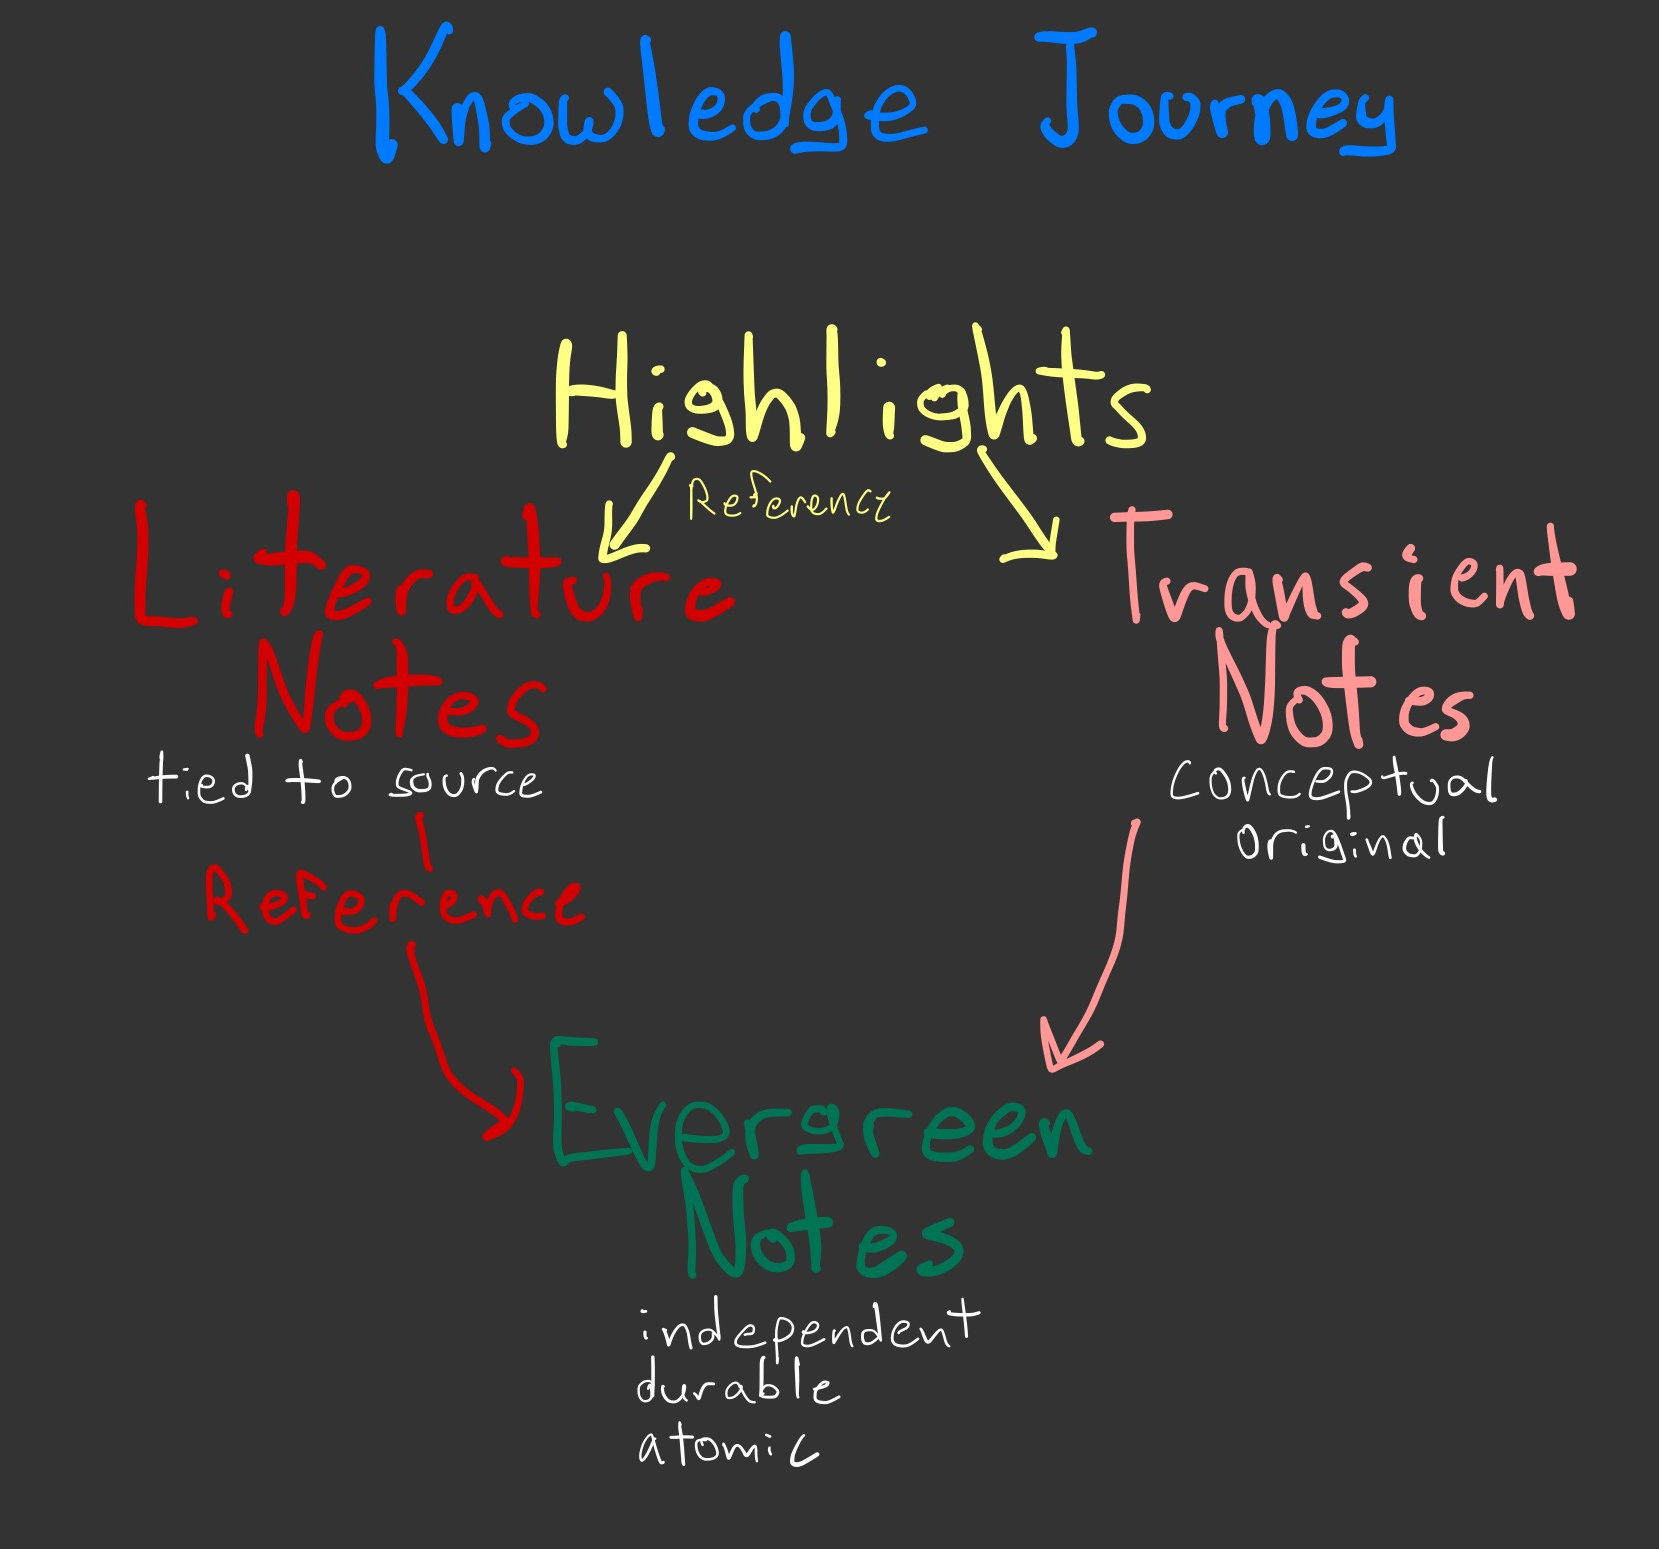 Knowledge Journey
Highlights
Reference
Literature
Notes
tied to source
Reference
Transient
Notes
conceptual
original
Evergreen
Notes
independent
durable
atomic